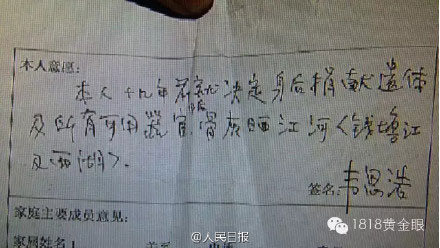 本人意愿:
本人十九年前就决定身后捐献遗体
及所有可用器官,骨灰洒江河(钱塘江
及西湖)。
签名: 韦思浩
家庭主要成员意见:
家属姓名1
@人民日报
1818黄金眼